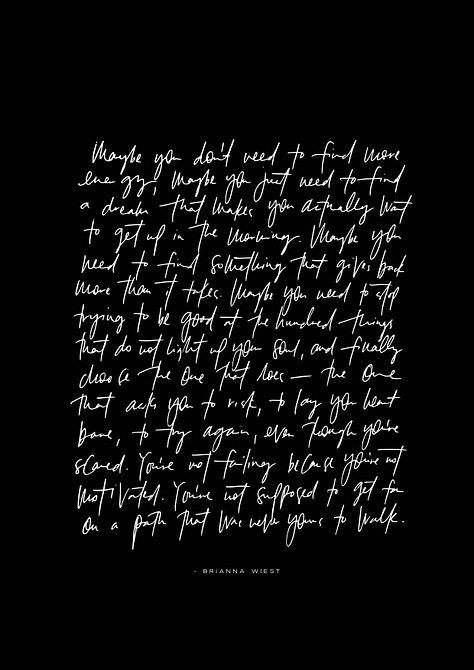 Maybe you don't need to find more
energy, Maybe you just need to find
a dream that makes you actually want
to get up in the morning. Maybe you
need to find something that gives back
more than it takes. Maybe you need to stop
trying to be good at the hundred things
that do not light up your soul, and finally
choose the one that does — the one
that asks you to risk, to lay your heart
bare, to try again, even though you're
scared. You're not failing because you're not
motivated. You're not supposed to get far
on a path that was never yours to walk.
- BRIANNA WIEST